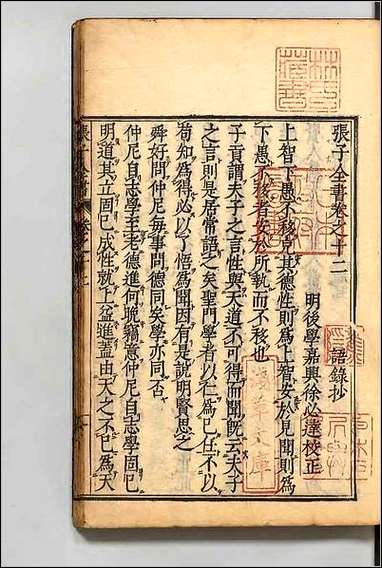 張子全書卷之十二
語錄抄
明後學嘉興徐必達校正
上智下愚不移充其德性則爲上智安於見聞則爲
下愚不移者安於所執而不移也
子貢謂夫子之言性與天道不可得而聞既云夫子
之言則是居常語之矣聖門學者以仁爲己任不以
苟知爲得必以了悟爲聞因有是說明賢思之
舜好問仲尼每事問德同矣學亦同否
仲尼自志學至老德進何晚竊意仲尼自志學固已
明道其立固已成性就上益進蓋由天之不已爲天
張子全書